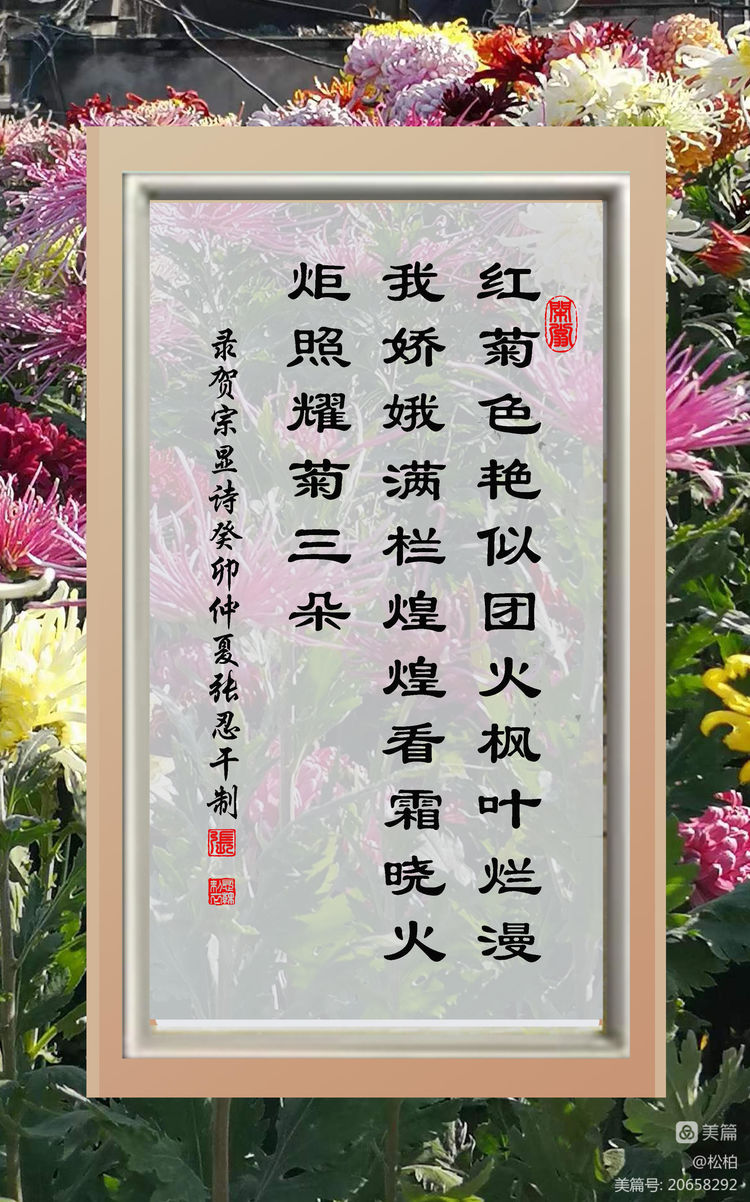 红菊色艳似团火枫叶烂漫
我娇娥满栏煌煌看霜晓火
炬照耀菊三朵
录贺宗显诗癸卯仲夏张忍干制
張
美篇
@松柏
美篇号: 20658292